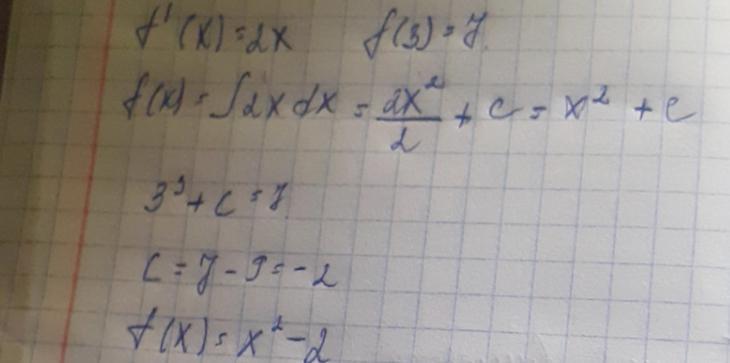 f'(x)=2x f(3)=7.
f(x)=∫2xdx=2x²/2+c=x²+c
3²+c=7
c=7-9=-2
f(x)=x²-2